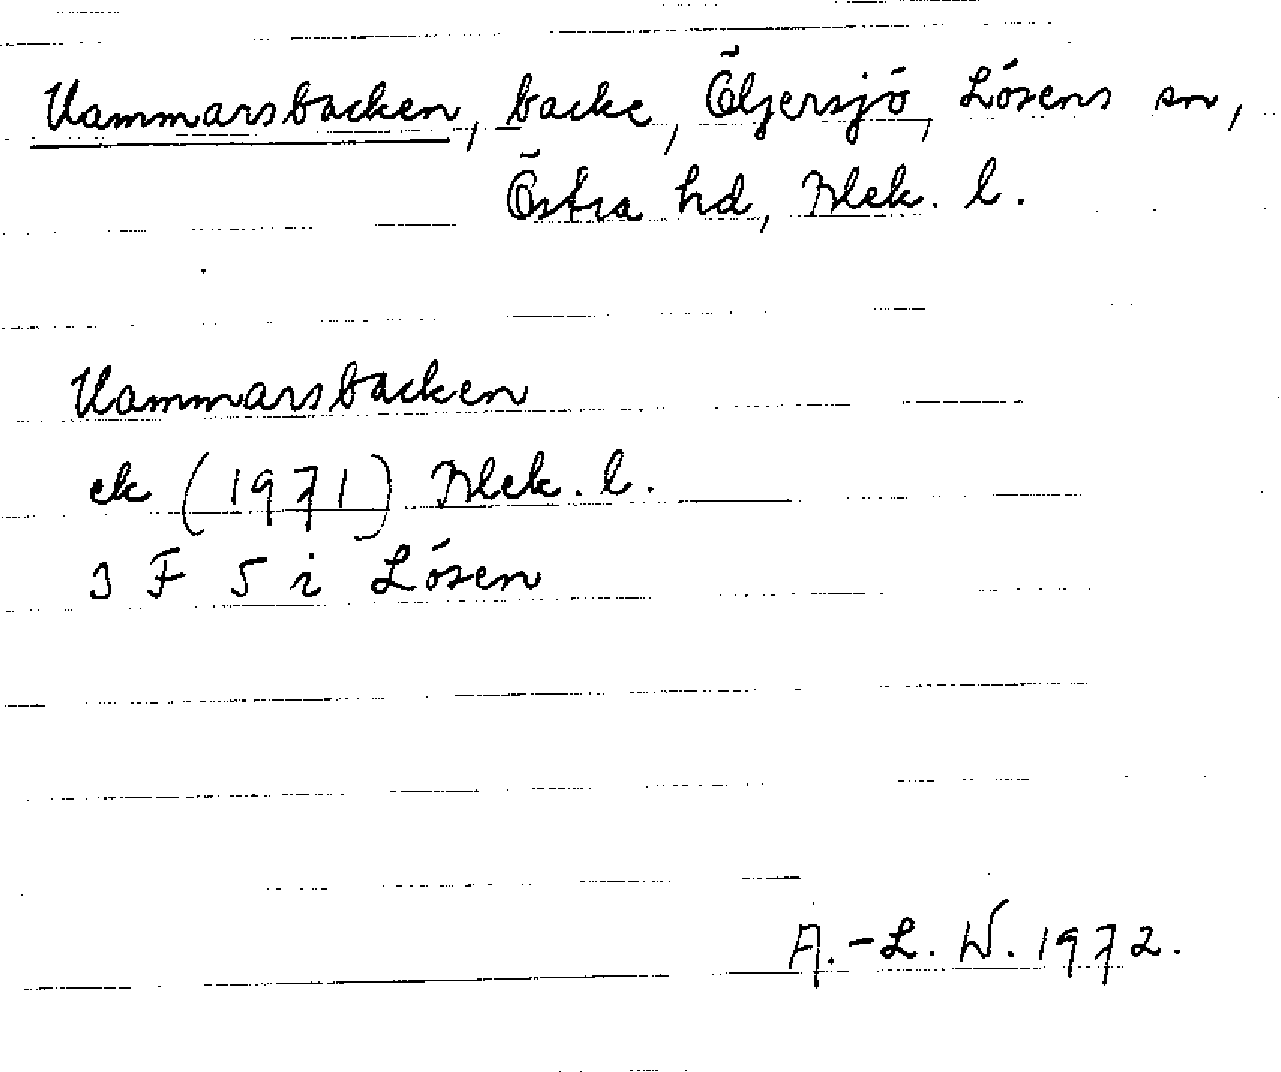 Kammarsbacken, backe, Öljersjö, Lösens sn,
Östra hd, Blek. l.
Kammarsbacken
ek (1971) Blek. l.
3 F 5 i Lösen
A.-L. W. 1972.